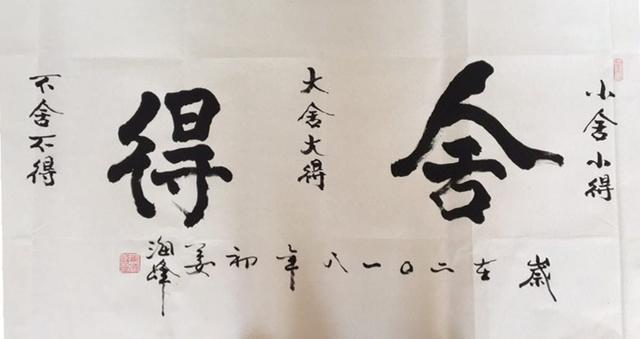 小舍小得
舍
大舍大得
得
不舍不得
岁在二〇一八年初姜海峰